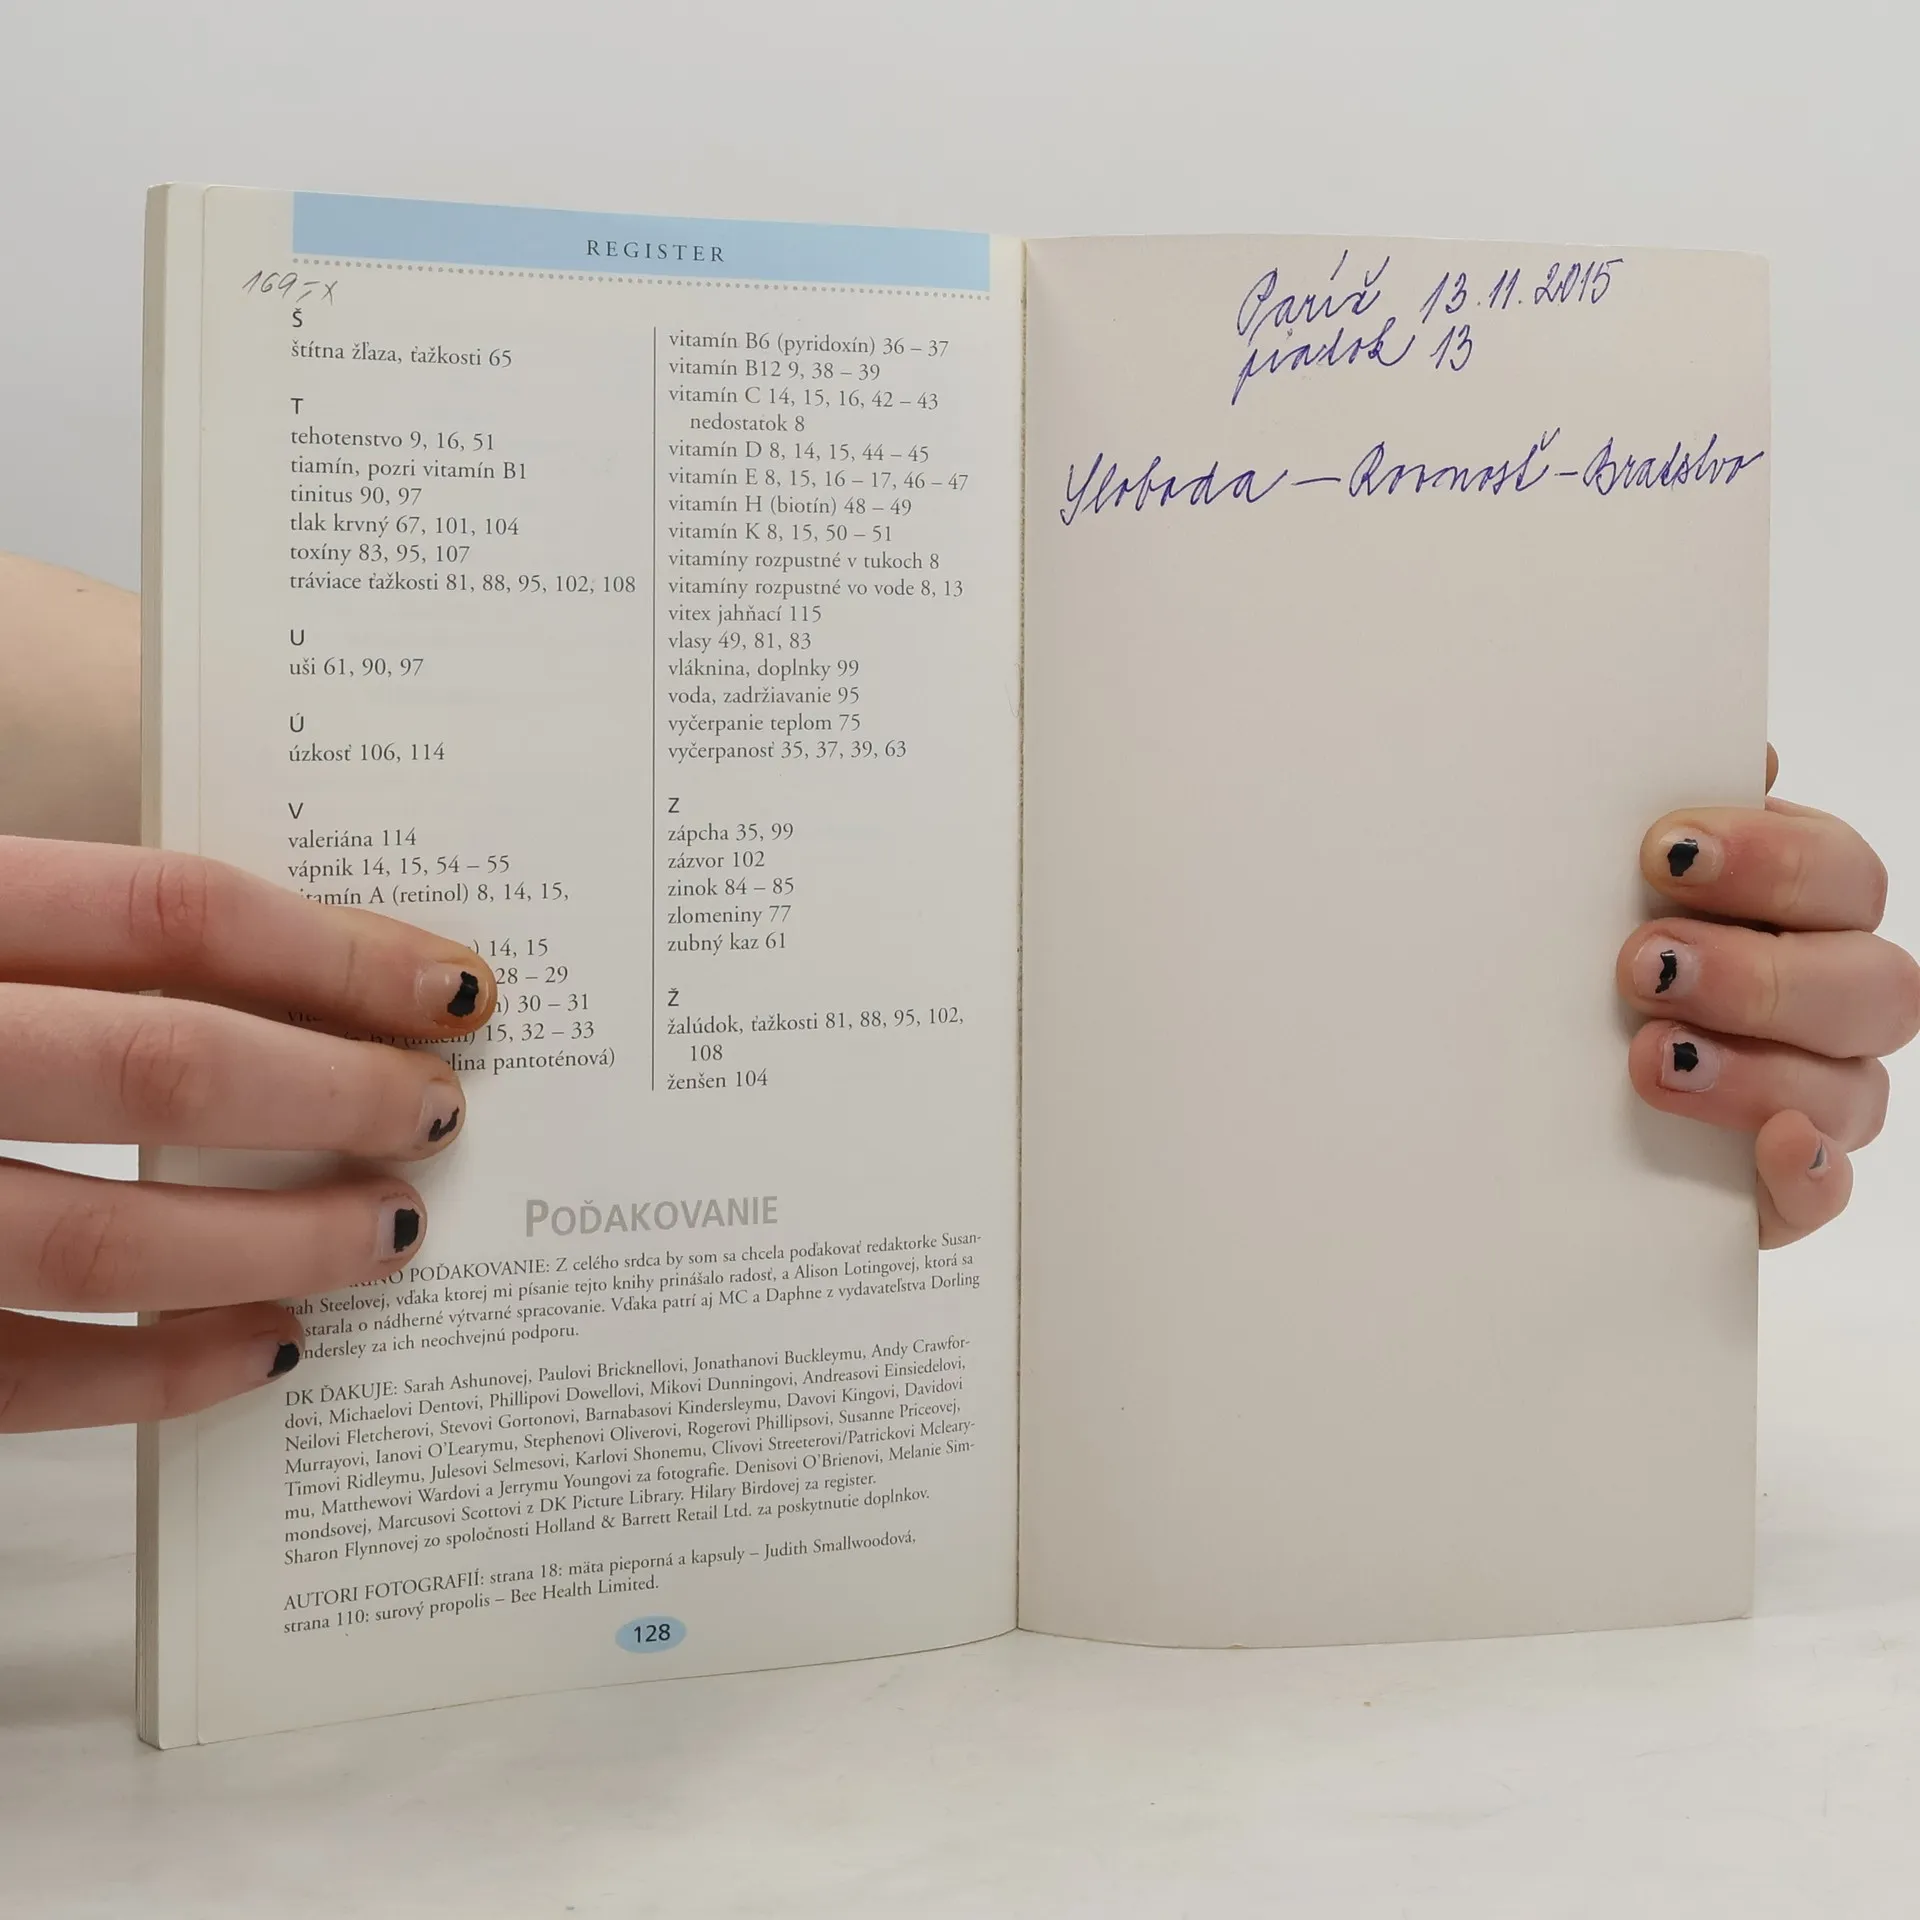 REGISTER
169,- x
Š
štítna žľaza, ťažkosti 65
T
tehotenstvo 9, 16, 51
tiamín, pozri vitamín B1
tinitus 90, 97
tlak krvný 67, 101, 104
toxíny 83, 95, 107
tráviace ťažkosti 81, 88, 95, 102, 108
U
uši 61, 90, 97
Ú
úzkosť 106, 114
V
valeriána 114
vápnik 14, 15, 54 – 55
vitamín A (retinol) 8, 14, 15,
) 14, 15
28 – 29
) 30 – 31
15, 32 – 33
pantoténová)
vitamín B6 (pyridoxín) 36 – 37
vitamín B12 9, 38 – 39
vitamín C 14, 15, 16, 42 – 43
nedostatok 8
vitamín D 8, 14, 15, 44 – 45
vitamín E 8, 15, 16 – 17, 46 – 47
vitamín H (biotín) 48 – 49
vitamín K 8, 15, 50 – 51
vitamíny rozpustné v tukoch 8
vitamíny rozpustné vo vode 8, 13
vitex jahňací 115
vlasy 49, 81, 83
vláknina, doplnky 99
voda, zadržiavanie 95
vyčerpanie teplom 75
vyčerpanosť 35, 37, 39, 63
Z
zápcha 35, 99
zázvor 102
zinok 84 – 85
zlomeniny 77
zubný kaz 61
Ž
žalúdok, ťažkosti 81, 88, 95, 102,
108
ženšen 104
POĎAKOVANIE
POĎAKOVANIE: Z celého srdca by som sa chcela poďakovať redaktorke Susan-
nah Steelovej, vďaka ktorej mi písanie tejto knihy prinášalo radosť, a Alison Lotingovej, ktorá sa
starala o nádherné výtvarné spracovanie. Vďaka patrí aj MC a Daphne z vydavateľstva Dorling
Kindersley za ich neochvejnú podporu.
DK ĎAKUJE: Sarah Ashunovej, Paulovi Bricknellovi, Jonathanovi Buckleymu, Andy Crawfor-
dovi, Michaelovi Dentovi, Phillipovi Dowellovi, Mikovi Dunningovi, Andreasovi Einsiedelovi,
Neilovi Fletcherovi, Stevovi Gortonovi, Barnabasovi Kindersleymu, Davovi Kingovi, Davidovi
Murrayovi, Ianovi O’Learymu, Stephenovi Oliverovi, Rogerovi Phillipsovi, Susanne Priceovej,
Timovi Ridleymu, Julesovi Selmesovi, Karlovi Shonemu, Clivovi Streeterovi/Patrickovi Mcleary-
mu, Matthewovi Wardovi a Jerrymu Youngovi za fotografie. Denisovi O’Brienovi, Melanie Sim-
mondsovej, Marcusovi Scottovi z DK Picture Library. Hilary Birdovej za register.
Sharon Flynnovej zo spoločnosti Holland & Barrett Retail Ltd. za poskytnutie doplnkov.
AUTORI FOTOGRAFIÍ: strana 18: mäta pieporná a kapsuly – Judith Smallwoodová,
strana 110: surový propolis – Bee Health Limited.
128
Paríž 13.11.2015
piatok 13
Sloboda – Rovnosť – Bratstvo